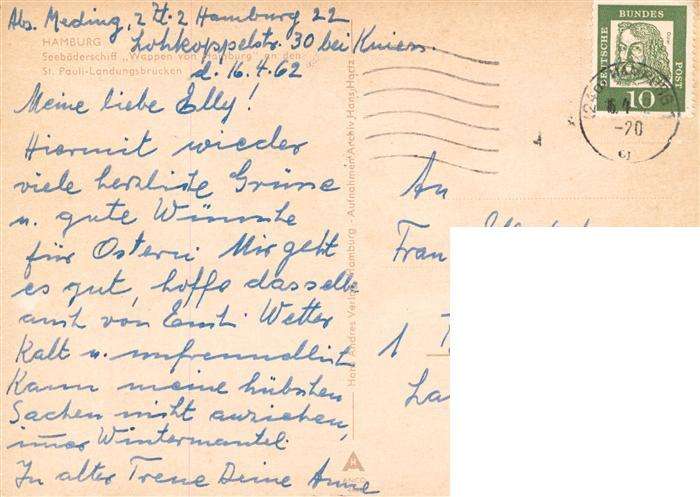 Abs. Meding, z. Zt. 2 Hamburg 22
Lohkoppelstr. 30 bei Kniess.
d. 16.4.62
HAMBURG
Seebäderschiff „Wappen von Hamburg" an den
St. Pauli-Landungsbrücken
Meine liebe Elly!
Hiermit wieder
viele herzliche Grüsse
u. gute Wünsche
für Ostern. Mir geht
es gut, hoffe dasselbe
auch von Euch. Wetter
kalt u. unfreundlich
Kann meine hübschen
Sachen nicht anziehen,
immer Wintermantel.
In alter Treue Deine Anne
Hans Andres Verlag, Hamburg - Aufnahmen: Archiv Hans Hartz
An
Frau
1
La
DEUTSCHE BUNDESPOST
10
-20